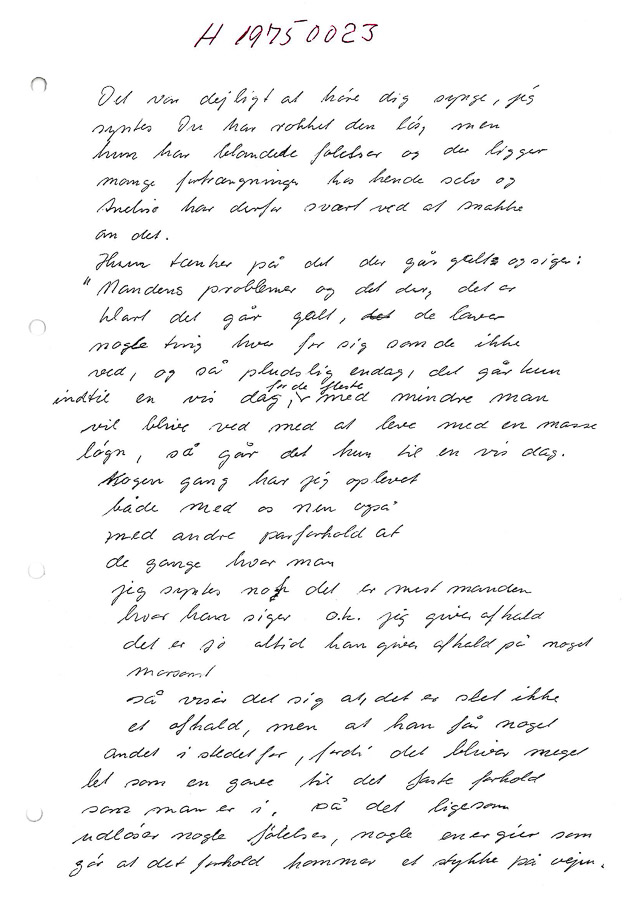 H 19750023
Det var dejligt at høre dig synge, jeg
syntes Du har rokket den lås, men
hun har blandede følelser og der ligger
mange fortrængninger hos hende selv og
har derfor svært ved at snakke
om det.
Hun tænker på det der går galt og siger:
"Mandens problemer og det der, det er
klart det går galt, de laver
nogle ting hver for sig som de ikke
ved, og så pludslig endag, det går kun
for de fleste
indtil en vis dag, med mindre man
vil blive ved med at leve med en masse
løgn, så går det kun til en vis dag.
Nogen gang har jeg oplevet
både med os men også
med andre parforhold at
de gange hvor man
jeg syntes nok det er mest manden
hvor han siger o.k. jeg giver afkald
det er jo altid han giver afkald på noget
morsomt
så viser det sig at, det er slet ikke
et afkald, men at han får noget
andet i stedet for, fordi det bliver meget
let som en gave til det faste forhold
som man er i, så det ligesom
udløser nogle følelser, nogle energier som
gør at det forhold kommer et stykke på vejen.